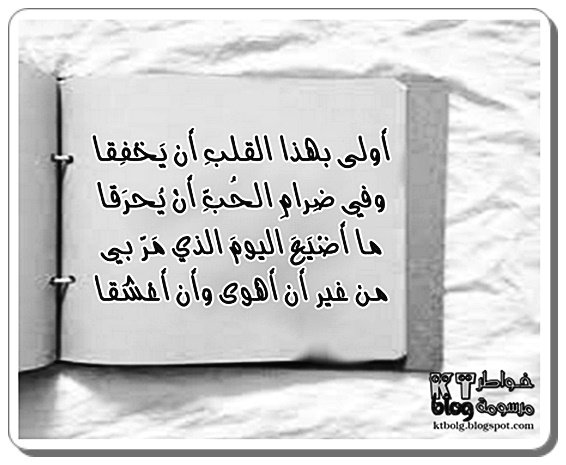 أولى بهذا القلبِ أن يَخْفِقا
وفي ضِرامِ الحُبِّ أنْ يُحرَقا
ما أضْيَعَ اليومَ الذي مَرّ بي
من غير أن أهوى وأن أعْشَقا
خواطر KT
مرسومة blog
ktbolg.blogspot.com